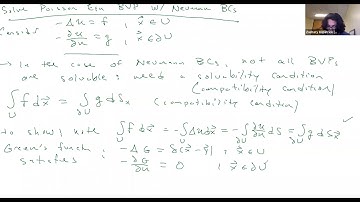 Solve Poisson Eqn BVP w/ Neumann BCs
Consider -Δu = f , x⃗ ∈ U
-∂u/∂n = g , x⃗ ∈ ∂U
→ In the case of Neumann BCs, not all BVPs
are soluble: need a solubility condition
(compatibility condition)
∫_U f dx⃗ = ∫_∂U g dS_x (compatibility condition)
to show, note ∫_U f dx⃗ = -∫_U Δu dx⃗ = -∫_∂U ∂u/∂n dS = ∫_∂U g dS_x⃗ ✓
Green's function -ΔG = δ(x⃗ - y⃗) , x⃗ ∈ U
satisfies: -∂G/∂n = 0 , x⃗ ∈ ∂U